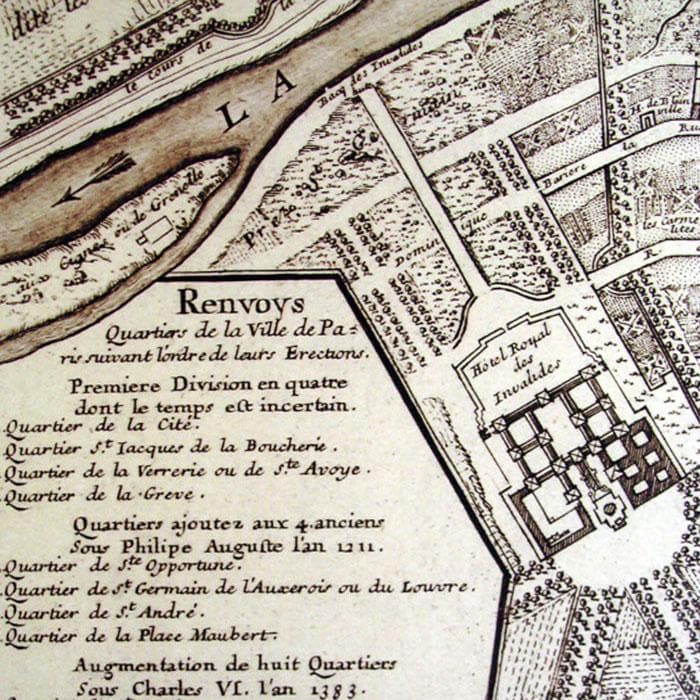 dite les
le Cours de la
LA
Bacq des Invalides
H. de Blain
ville
Bariere la Ru
les Carme
lites
R
Domin ique
ou de Grenelle
Hôtel Royal
des
Invalides
Renvoys
Quartiers de la Ville de Pa=
ris suivant l'ordre de leurs Erections.
Premiere Division en quatre
dont le temps est incertain.
Quartier de la Cité.
Quartier S.t Iacques de la Boucherie.
Quartier de la Verrerie ou de S.te Avoye.
Quartier de la Greve.
Quartiers ajoutez aux 4. anciens
Sous Philipe Auguste l'an 1211.
Quartier de S.te Opportune.
Quartier de S.t Germain de l'Auxerois ou du Louvre.
Quartier de S.t André.
Quartier de la Place Maubert.
Augmentation de huit Quartiers
Sous Charles VI. l'an 1383.